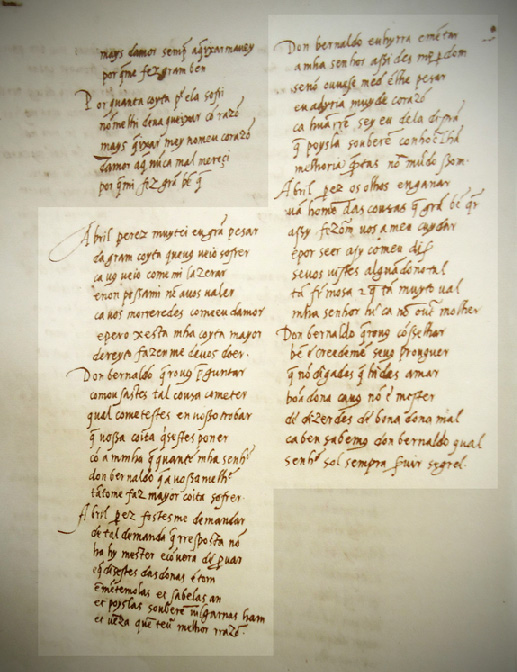 mays damor semp̃ aq̃ixar mauey
por q̃me fez gram ben
Por quanta coyta p̃ ela sofri
nõ melhi dena queixar cõ razõ
mays q̃ixar mey nomeu corazõ
damor aq̃ nũca mal mereçi
por q̃mi fez grã bẽ q̃
Abril perez muytei eu grã pesar
da gram coyta queuꝯ ueio sofrer
ca uꝯ ueio comemi lazerar
e non possami nẽ auos ualer
ca uos morreredes comeeu damor
e pero xesta mha coyta mayor
dereyn fazen me deuos doer.
Don bernaldo q̃rouꝯ p̃guntar
comousastes tal cousa cometer
qual cometestes en uosso trobar
q̃ uossa coita q̃sestes poner
cõ a minha q̃ quante mha senhor
don bernaldo q̃a uossa melhor
tãtome faz mayor coita sofrer.
Abril p̃ez fostesme demandar
de tal demanda q̃ resposta nõ
ha hy mester e cõuẽra de p̃uar
e q̃ dissestes das donas e tom
ẽmẽtemolas et sabelas an
et poyslas souberẽ iulgarnas ham
et uẽza que teu melhor rrazõ.
Don bernaldo eu hyrra emẽtar
a mha senhor assi des me p̃dom
senõ ouuesse medẽ lha pesar
eu a dyria muyde corazõ
ca hũa rrẽ sey eu dela de p̃nã
q̃ poysla souberẽ conhoçelhã
melhoria q̃ntas no mũdo ssom.
Abril pez os olhus enganar
uã home das cousas q̃ grã bẽ q̃r
assy fezõm uos a meu cuydar
e por seer assy comeu disser
se uos uistes algũa dona tal
tã fremosa e q̃ tã muyto ual
mha senhor hi ca nõ out̃ molher
Don bernaldo q̃rouꝯ cõsselhar
bẽ e creedeme seuꝯ prouguer
q̃ nõ digades q̃ hides amar
bõa dona ca uꝯ nõ é mester
de dizerdes de bõna dona mal
ca ben sabemꝯ don bernaldo qual
senhor sol sempra seruir segrel.